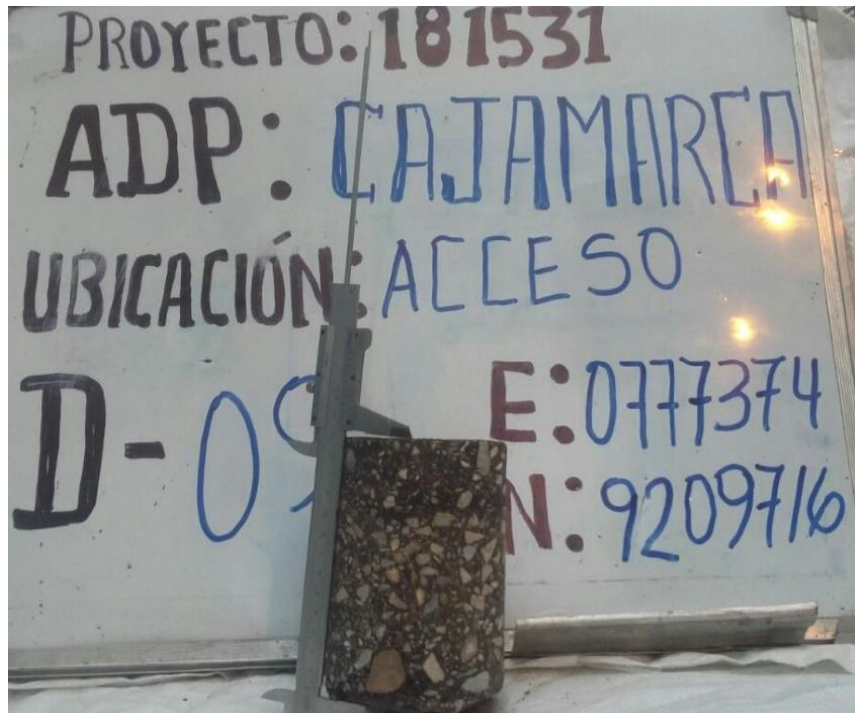 PROYECTO: 181531
ADP: CAJAMARCA
UBICACIÓN: ACCESO
D-09
E: 0777374
N: 9209716